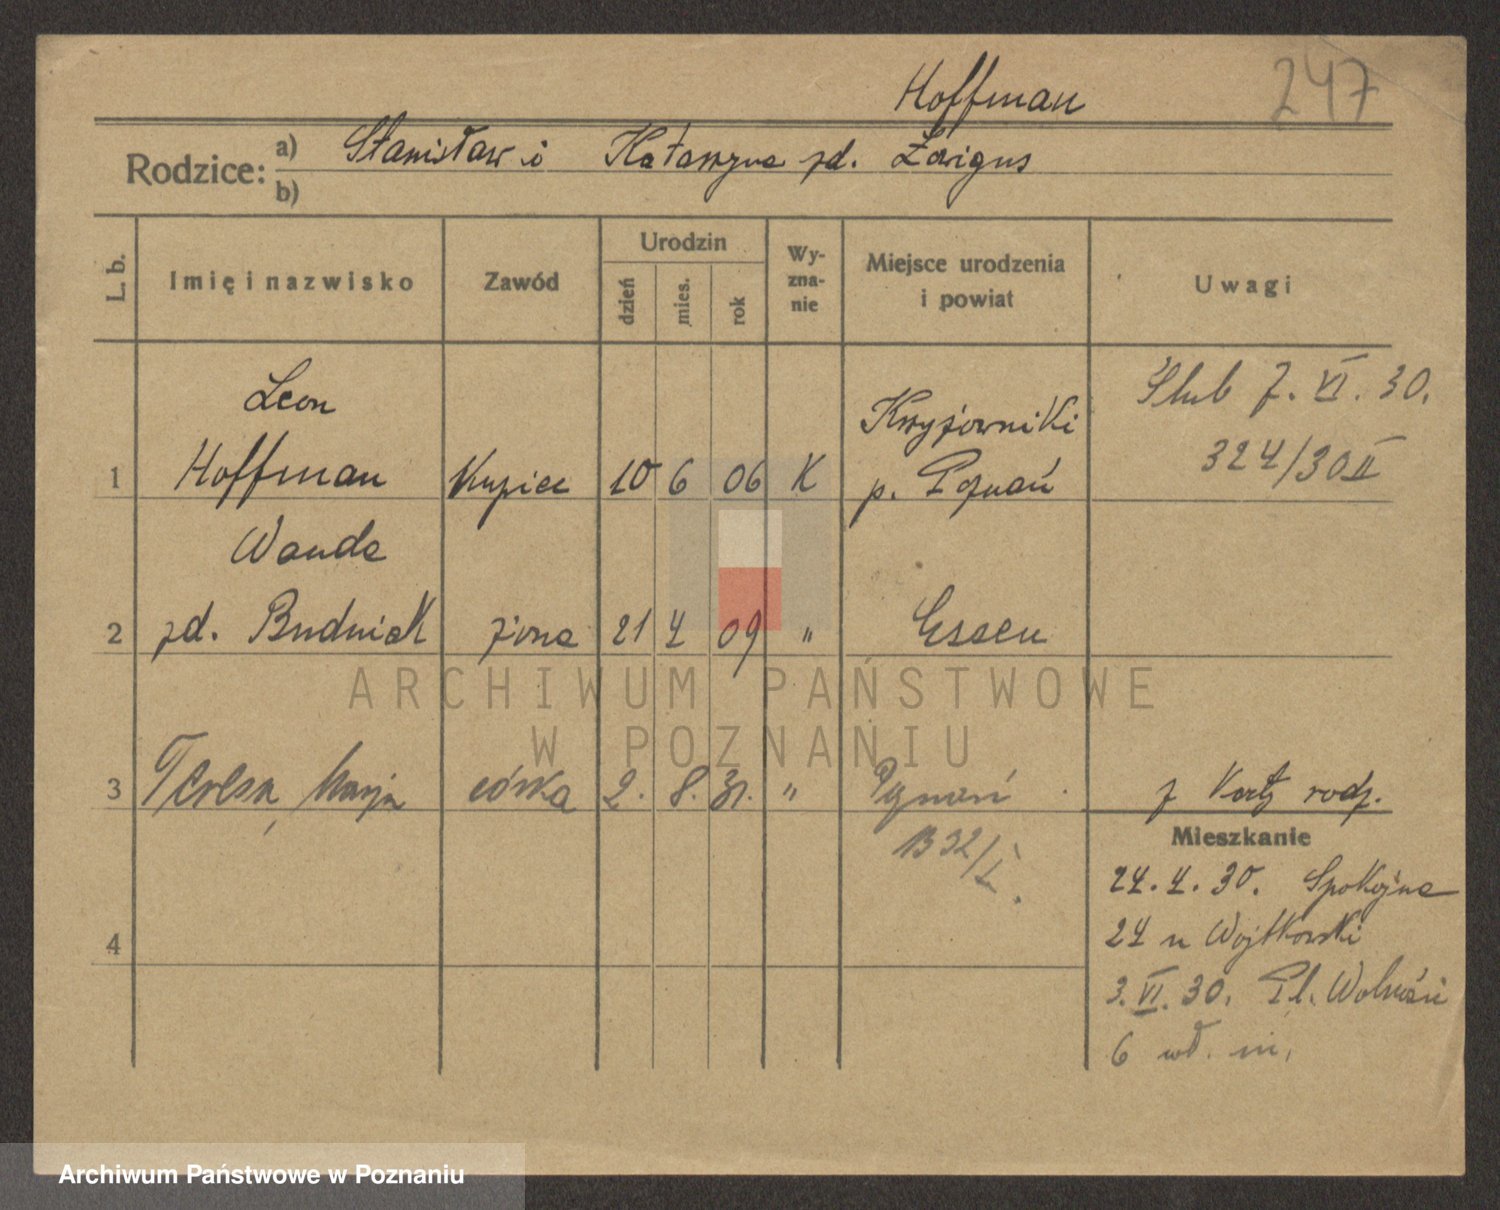 Hoffman
247
Rodzice: a) Stanisław i Katarzyna zd. Łazigus
b)
L. b. Imię i nazwisko Zawód Urodzin dzień mies. rok Wy-zna-nie Miejsce urodzenia i powiat Uwagi
Leon
Ślub 7. VI. 30.
Krzyżowniki
1 Hoffman Kupiec 10 6 06 K p. Poznań 324/30 II
Wanda
2 zd. Budniak żona 21 4 09 " Essen
ARCHIWUM PAŃSTWOWE
W POZNANIU
3 Teresa, Marja córka 2. 8. 31. " Poznań z Karty rodz.
B 32/I.
Mieszkanie
24. 4. 30. Spokojna
24 u Wojtkowski
4
3. VI. 30. Pl. Wolności
6 wł. m.
Archiwum Państwowe w Poznaniu